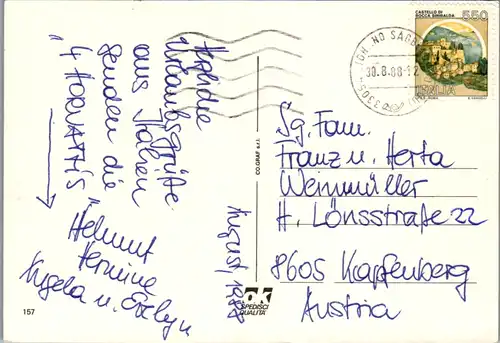 Herzliche
Urlaubsgrüße
aus Italien
senden die
"4 HORVATH'S"
Helmut
Hermine
Angela u. Evelyn
August, 1988
157
CO.GRAF s.r.l.
SPEDISCI
QUALITA'
CASTELLO DI
ROCCA SINIBALDA
550
ITALIA
30.8.88-12
Sg. Fam.
Franz u. Herta
Weinmüller
H. Lönsstraße 22
8605 Kapfenberg
Austria